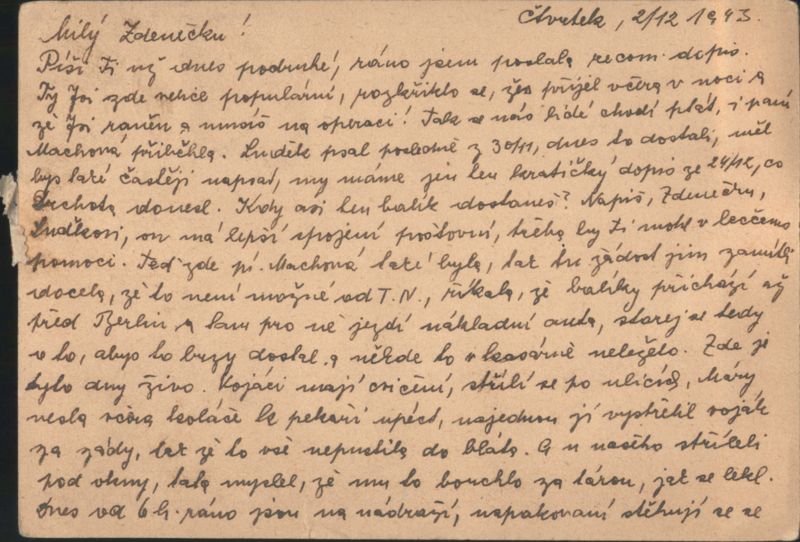 Čtvrtek, 2/12 1943.
Milý Zdenečku!
Píši Ti už dnes podruhé, ráno jsem poslala recom. dopis.
Ty Jsi zde velice populární, rozkřiklo se, žes přijel včera v noci a
že Jsi raněn a musíš na operaci! Tak se nás lidé chodí ptát, i paní
Machová přiběhla. Luděk psal posledně z 30/11, dnes to dostali, měl
bys také častěji napsat, my máme jen ten kratičký dopis ze 24/12, co
Srchota donesl. Kdy asi ten balík dostaneš? Napiš, Zdenečku,
Luďkovi, on má lepší spojení poštovní, třeba by Ti mohl v lecčems
pomoci. Teď zde pí. Machová také byla, tak tu žádost jim zamítli
docela, že to není možné od T.N., říkala, že balíky přichází až
před Berlin a tam pro ně jezdí nákladní auta, starej se tedy
o to, abys to brzy dostal a někde to v kasárně neleželo. Zde je
tyto dny živo. Vojáci mají cvičení, střílí se po ulicích, Máry
nesla včera koláče k pekaři upéct, najednou jí vystřelil voják
za zády, tak že to vše nepustila do bláta. A u našeho stříleli
pod okny, táta myslel, že mu to bouchlo za károu, jak se lekl.
Dnes od 6 h. ráno jsou na nádraží, napakovaní stěhují se se